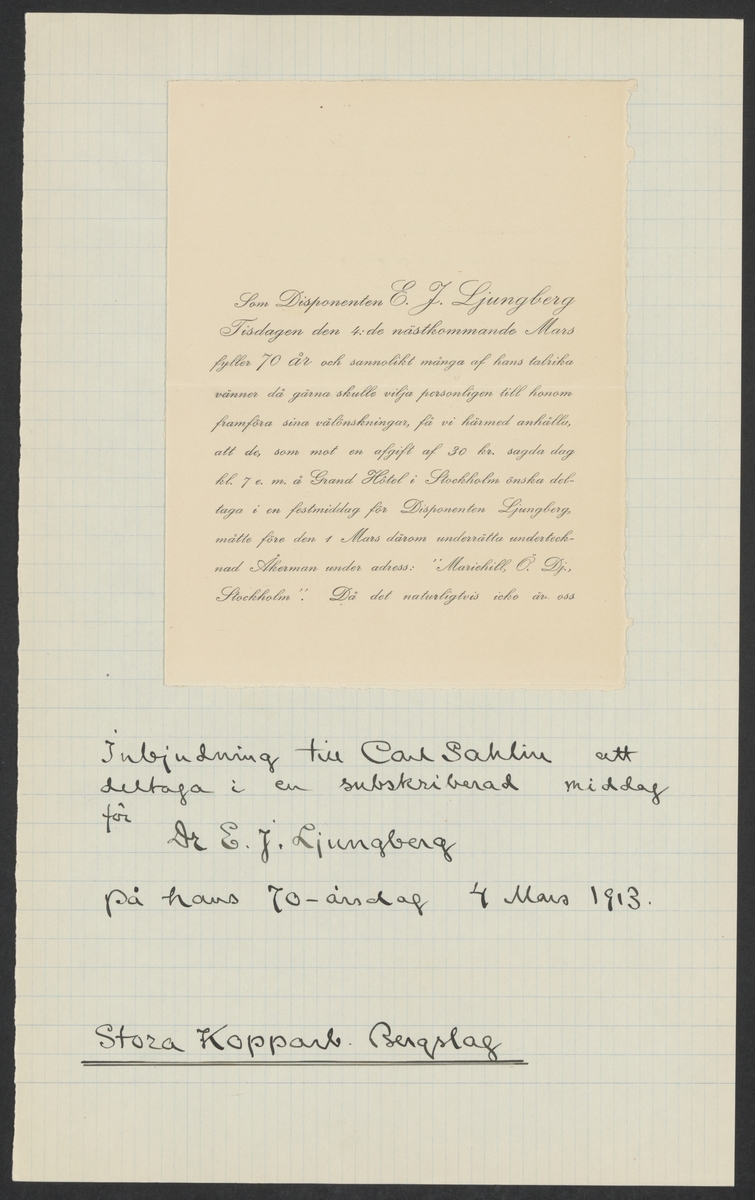 Som Disponenten E. J. Ljungberg
Tisdagen den 4:de nästkommande Mars
fyller 70 år och sannolikt många af hans talrika
vänner då gärna skulle vilja personligen till honom
framföra sina välönskningar, få vi härmed anhålla,
att de, som mot en afgift af 30 kr. sagda dag
kl. 7 e. m. å Grand Hôtel i Stockholm önska del-
taga i en festmiddag för Disponenten Ljungberg,
måtte före den 1 Mars därom underrätta underteck-
nad Åkerman under adress: "Mariehill, Ö. Dj.,
Stockholm". Då det naturligtvis icke är oss
Inbjudning till Carl Sahlin att
deltaga i en subskriberad middag
för
Dr E. J. Ljungberg
på hans 70-årsdag 4 Mars 1913.
Stora Kopparb. Bergslag